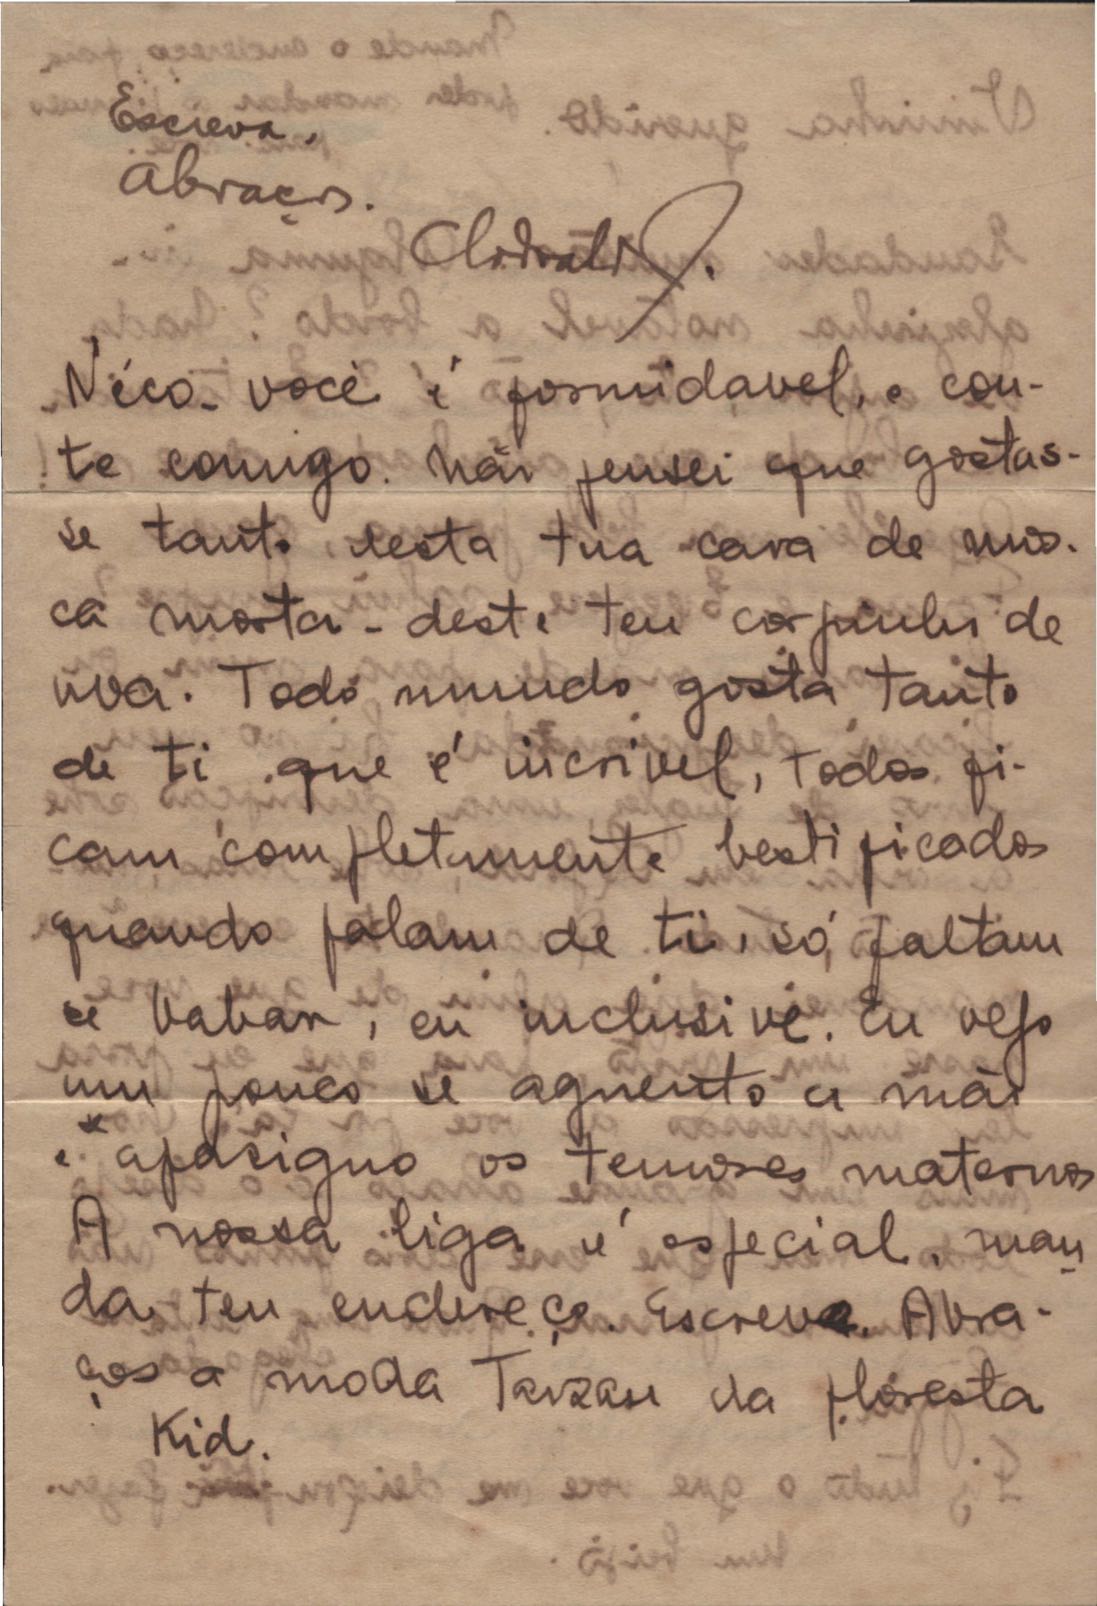 Escreva.
Abraços.
Clodoaldo.
Néco. você é formidavel, e con-
te comigo. Não pensei que gostas-
se tanto desta tua cara de mos-
ca morta - deste teu corpinho de
uva. Todo mundo gosta tanto
de ti que é incrivel, todos fi-
cam completamente bestificados
quando falam de ti, só faltam
se babar, eu inclusivé. Eu vejo
um pouco se aguento a mãe
e apasiguo os temores maternos
A nossa liga é especial. man
da teu endereço. Escreve. Abra-
ços a moda Tarzan da floresta
Kid.